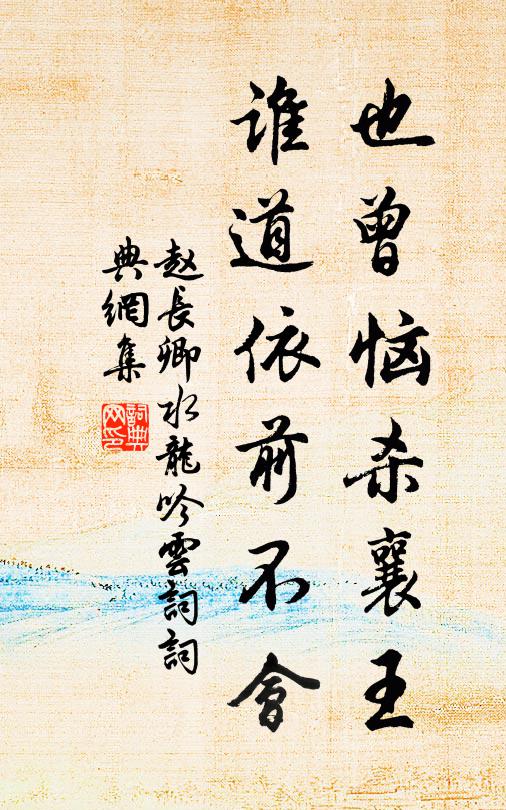 也曾恼杀襄王
谁道依前不会
赵長卿水龍吟雲詞詞
典網集
詞典
网印